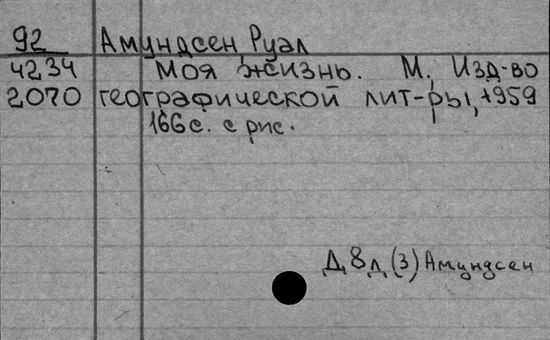 92 Амундсен, Руал
4234 Моя жизнь. М., Изд-во
2070 географической лит-ры, 1959
166 с. с рис.
Д, 8 д, (3) Амундсен